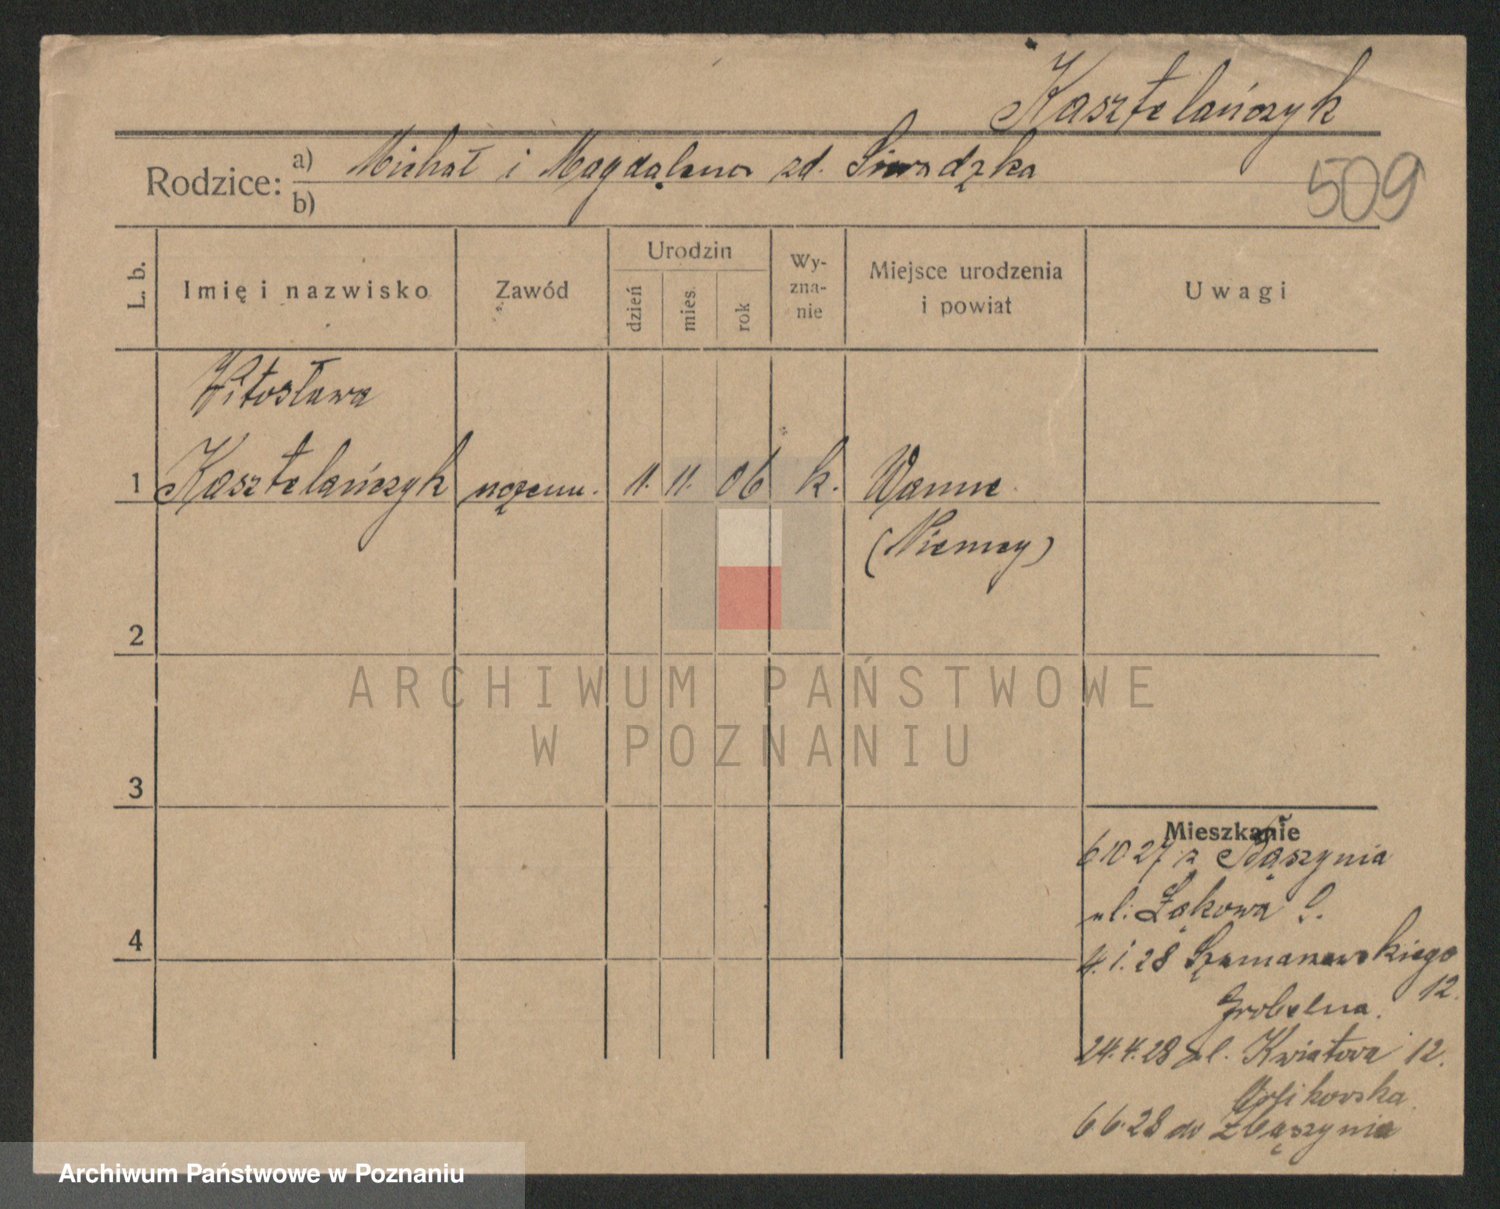 Kasztelańczyk
Rodzice: a) Michał i Magdalena zd. Sieradzka
b)
509
L. b.
Imię i nazwisko
Zawód
Urodzin
dzień
mies.
rok
Wy-
zna-
nie
Miejsce urodzenia
i powiat
Uwagi
Witosława
1 Kasztelańczyk
11. 11. 06 k. Wanne
(Niemcy)
2
ARCHIWUM PAŃSTWOWE
W POZNANIU
3
Mieszkanie
6 10 27 z Zbąszynia
ul. Łąkowa
4. 1. 28 Szamarzewskiego
12.
Grobelna.
24. 4. 28 ul. Kwiatowa 12.
4
6 6. 28 do Zbąszynia
Archiwum Państwowe w Poznaniu